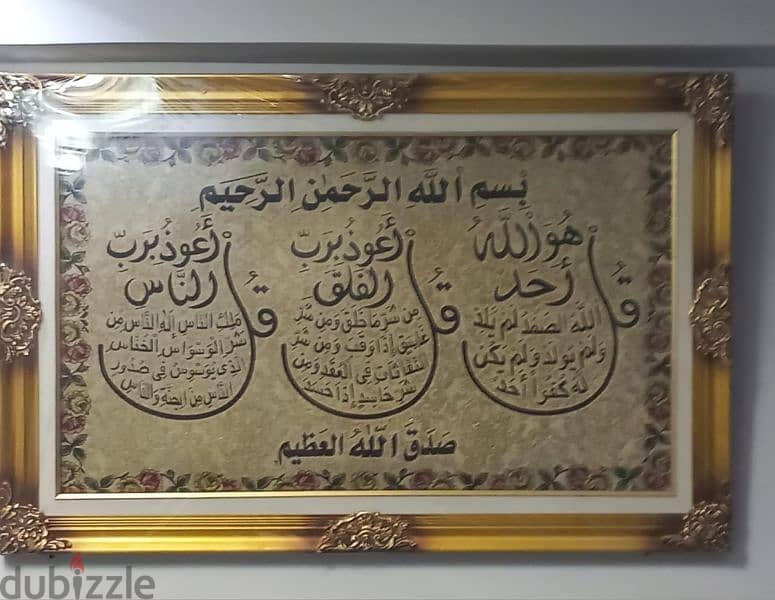 بِسْمِ اللَّهِ الرَّحْمَنِ الرَّحِيمِ
قُلْ هُوَ اللَّهُ
أَحَدٌ
اللَّهُ الصَّمَدُ لَمْ يَلِدْ
وَلَمْ يُولَدْ وَلَمْ يَكُن
لَهُ كُفُوًا أَحَدٌ
قُلْ أَعُوذُ بِرَبِّ
الْفَلَقِ
مِن شَرِّ مَا خَلَقَ وَمِن شَرِّ
غَاسِقٍ إِذَا وَقَبَ وَمِن شَرِّ
النَّفَّاثَاتِ فِي الْعُقَدِ وَمِن
شَرِّ حَاسِدٍ إِذَا حَسَدَ
قُلْ أَعُوذُ بِرَبِّ
النَّاسِ
مَلِكِ النَّاسِ إِلَهِ النَّاسِ مِن
شَرِّ الْوَسْوَاسِ الْخَنَّاسِ
الَّذِي يُوَسْوِسُ فِي صُدُورِ
النَّاسِ مِنَ الْجِنَّةِ وَالنَّاسِ
صَدَقَ اللَّهُ الْعَظِيمُ
dubizzle